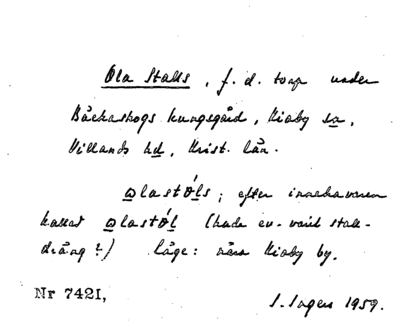 Ola Stalls, f.d. torp under
Bäckaskogs kungsgård, Kiaby sn,
Villands hd, Krist. län.
ꞷlastɷ́ls; efter innehavaren
kallad ꞷlastɷ́l (hade ev. varit stall-
dräng?) Läge: nära Kiaby by.
Nr 7421,
S. Ingers 1959.